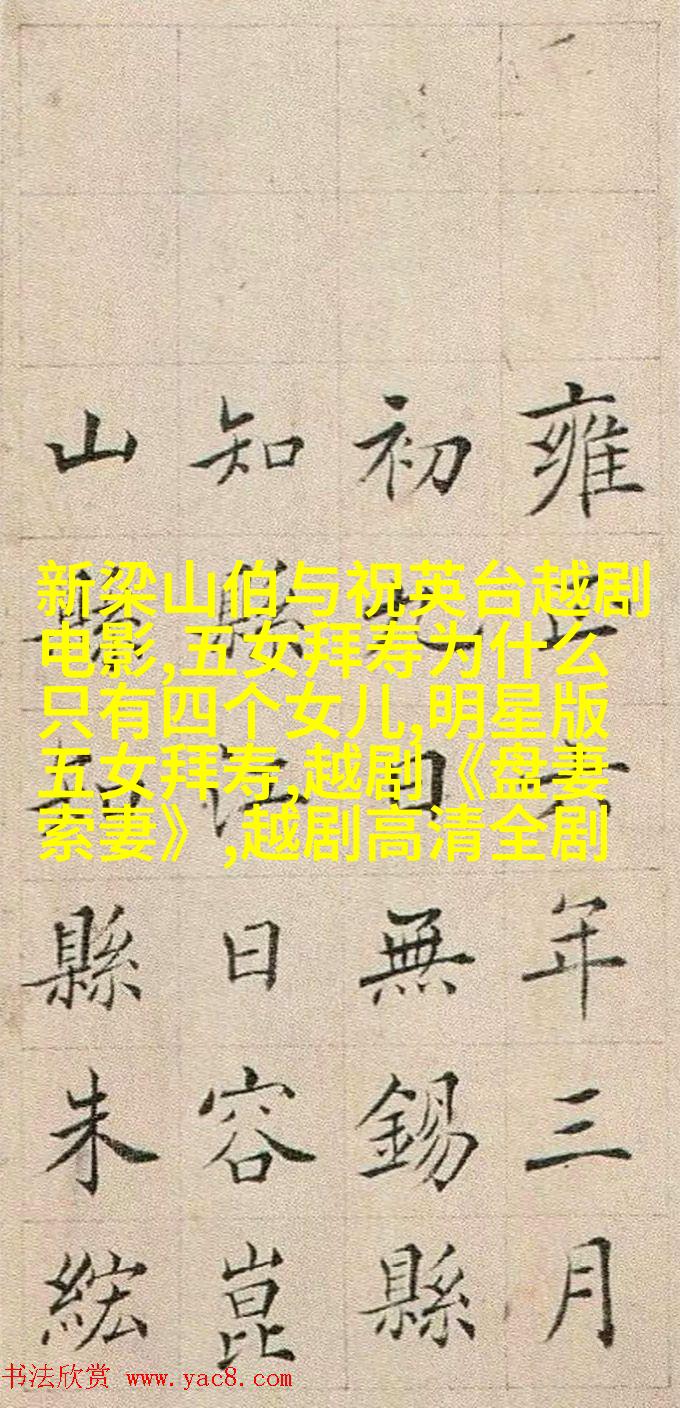 新梁山伯与祝英台越剧
电影,五女拜寿为什么
只有四个女儿,明星版
五女拜寿,越剧《盘妻
索妻》,越剧高清全剧
雍正六年三月
初日無錫縣
知縣江日容崑
山縣知縣朱紘
书法欣赏 www.yac8.com